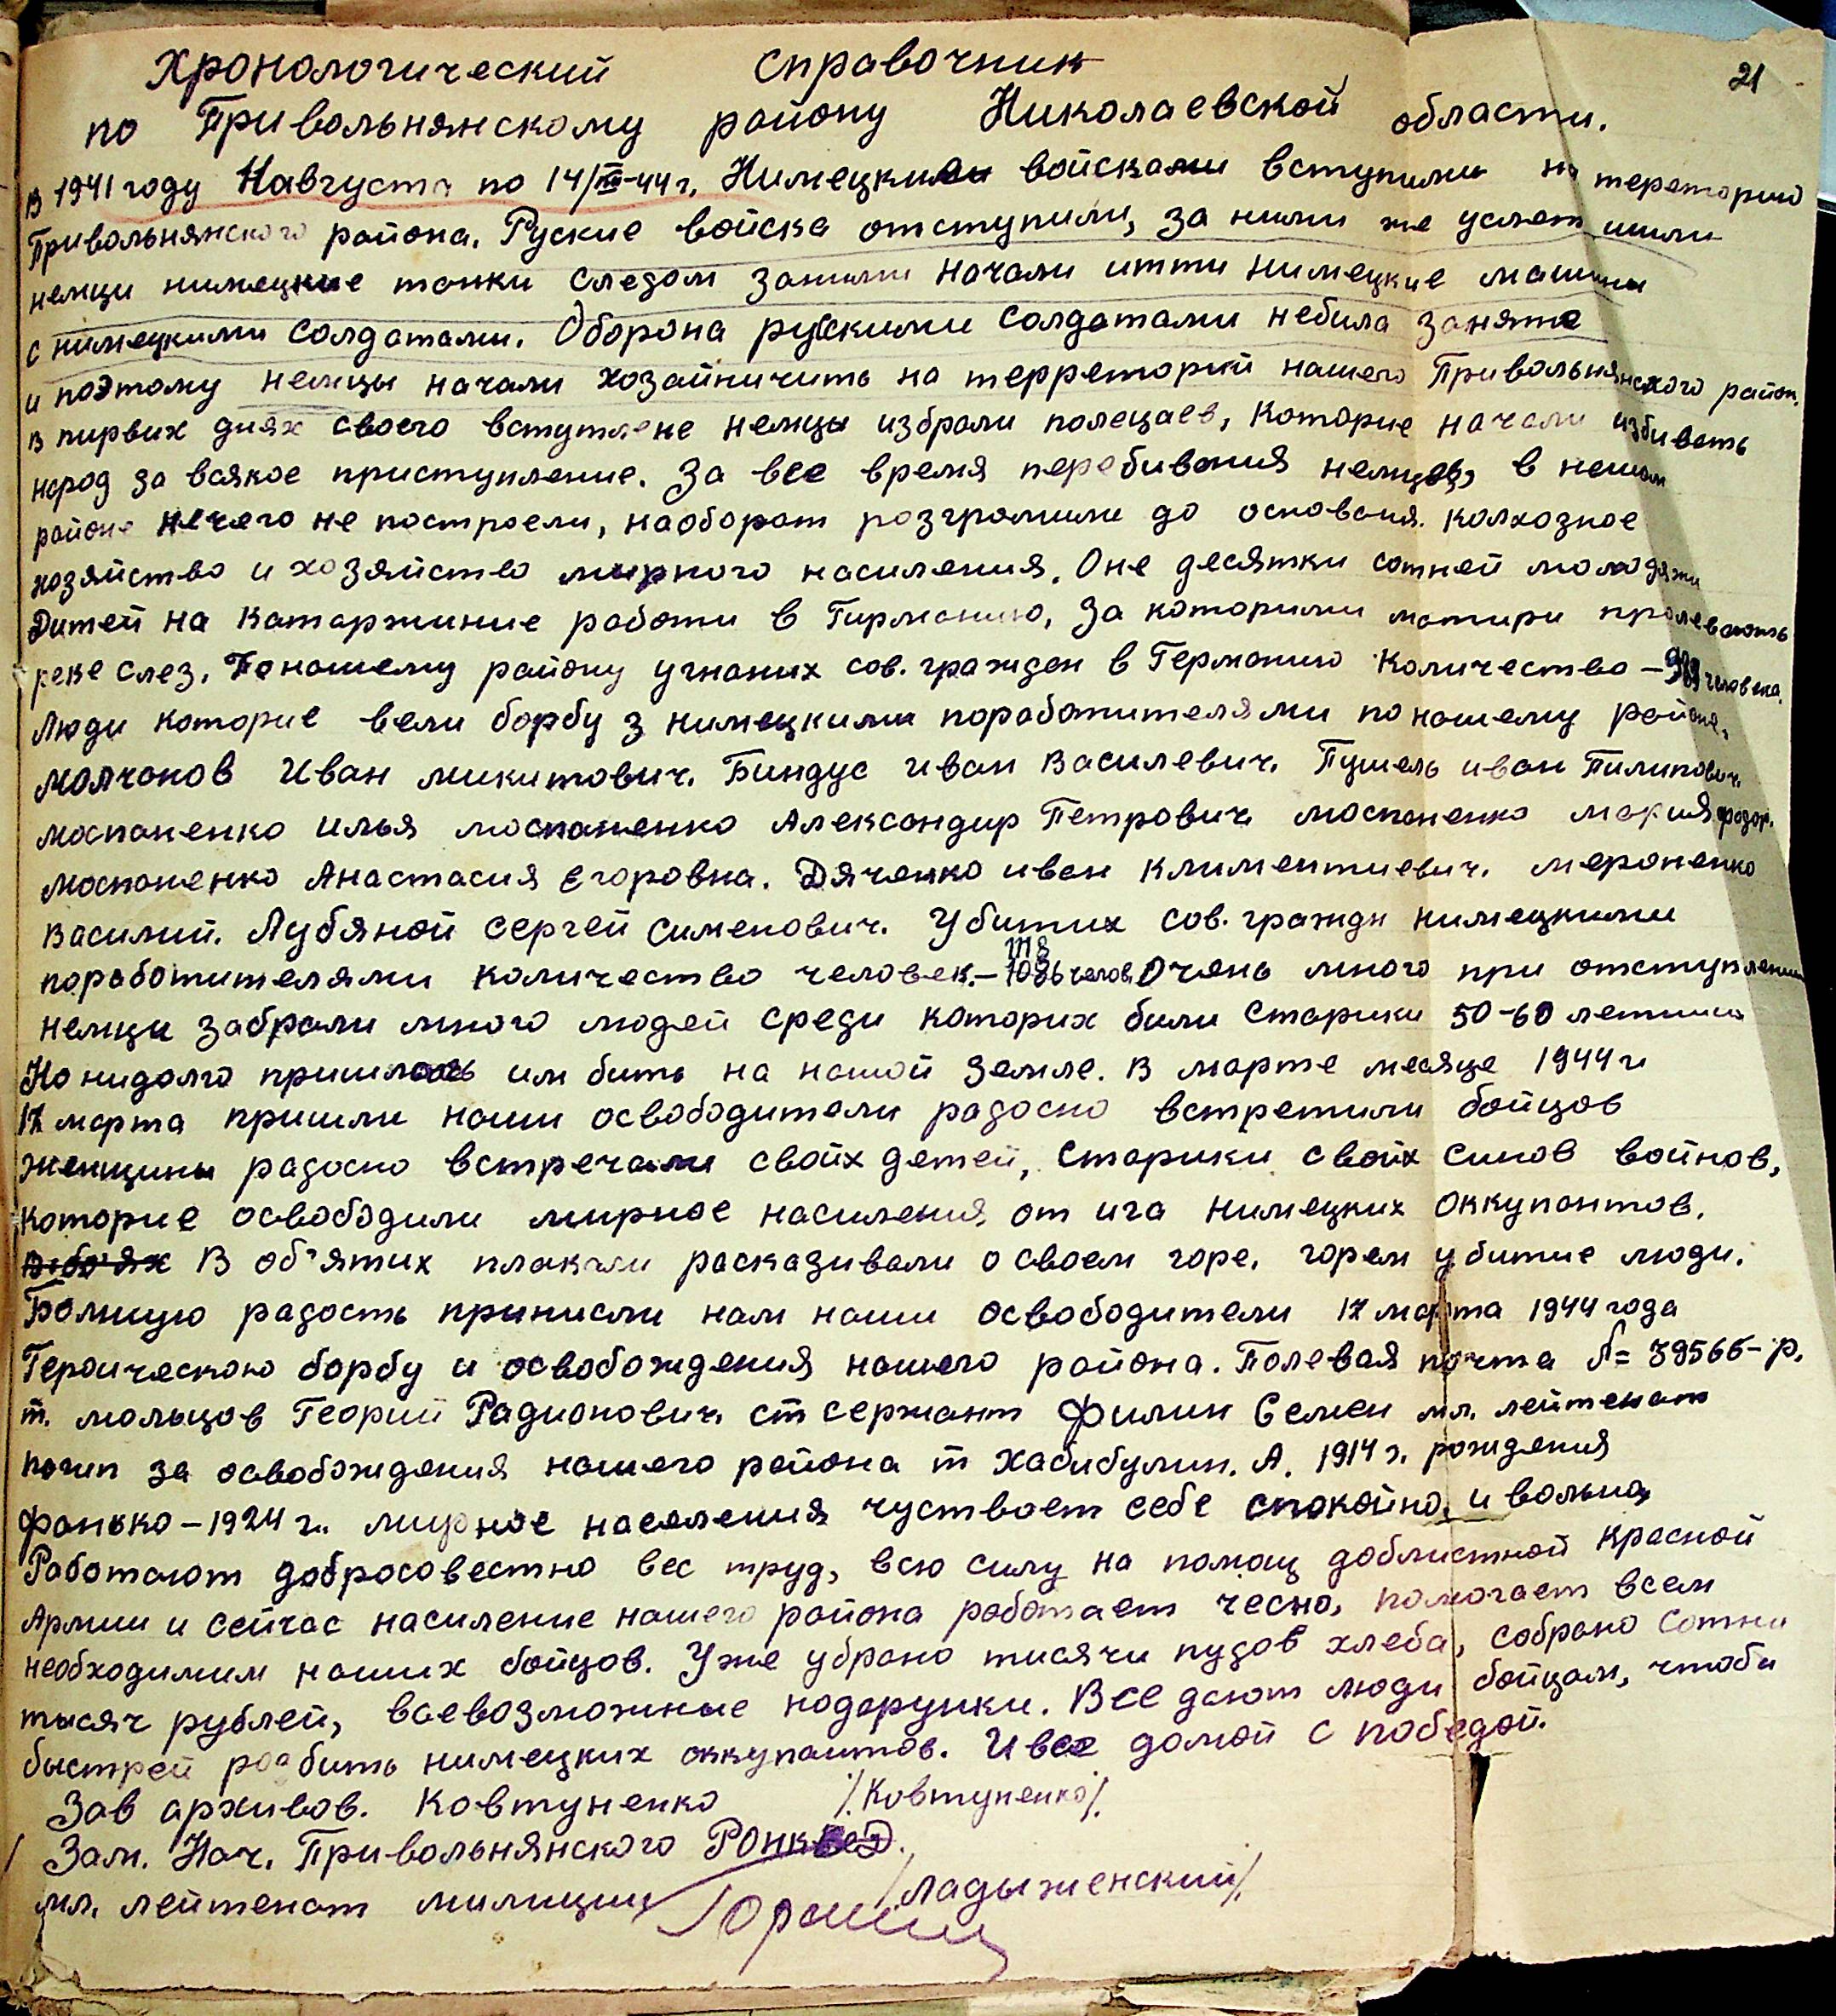 21
Хронологический справочник
по Привольнянскому району Николаевской области.
В 1941 году августа по 14/III-44 г. Нимецкими войсками вступили на тереторию
Привольнянского района. Руские войска отступили, за ними же услет шили
немци нимецкие танки следом заними начали итти нимецкие машини
с нимецкими солдатами. Оборона рускими солдатами небила занята
и поэтому немцы начали хозайничить на терреторий нашего Привольнянского район.
В пирвих днях своего вступлене немцы избрали полецаев, которие начали избивать
народ за всякое приступление. За все время перебивания немцев, в нашом
районе нечего не построели, наоборот розгромили до основания. колхозное
хозяйство и хозяйство мирного насиления. Оне десятки сотней молодяжи
Дитей на Катаржиние работи в Гирманию, За которими матири пролевають
реке слез. По нашему району угнаних сов. граждан в Германию количество – человека.
Люди которие вели борбу з нимецкими поработителями по нашему районе,
Молчанов Иван микитович. Биндус иван Василевич. Пушель иван Пилипович.
моспаненко илья моспаненко Александир Петрович моспаненко мария федор.
моспаненко Анастасия егоровна. Дяченко иван климентиевич. мероненко
василий. Лубяной сергей сименович. Убитих сов. граждн нимецкими
поработителями количество человек. – 1086 челов. Очень много при отступлении
1118
немци забрали много людей среди которих били старики 50-60 летнии
Но нидолго пришлось им бить на нашой земле. В марте месяце 1944 г
17 марта пришли наши освободители радосно встретили бойцов
женщины радосно встречали свойх детей, старики свойх синов войнов,
которие освободили мирное насиления от ига нимецких оккупантов.
В об'ятих плакали расказивали о своем горе. горем убитие люди.
Болшую радость принисли нам наши освободители 17 марта 1944 года
Героическою борбу и освобождения нашего района. Полевая почта № 39566-р.
т. мольцов Георий Радионович. ст сержант Филин Семен мл. лейтенант
погип за освобождения нашего района т Хабибулин. А. 1914 г. рождения
фанько – 1924 г. мирное населения чуствает себе спокойно, и вольна,
Работают добросовестно вес труд, всю силу на помощ доблистной красной
Армии и сейчас насиление нашего района работает чесно, помогает всем
необходимим наших бойцов. Уже убрано тисячи пудов хлеба, собрано сотни
тысяч рублей, всевозможные подарунки. Все дают люди бойцам, чтоби
быстрей розбить нимецких оккупантов. И все домой с победой.
Зав архивов. Ковтуненко /.Ковтуненко/.
Зам. Нач. Привольнянского РОНКВД.
мл. лейтенант милиции /Ладыженский/.